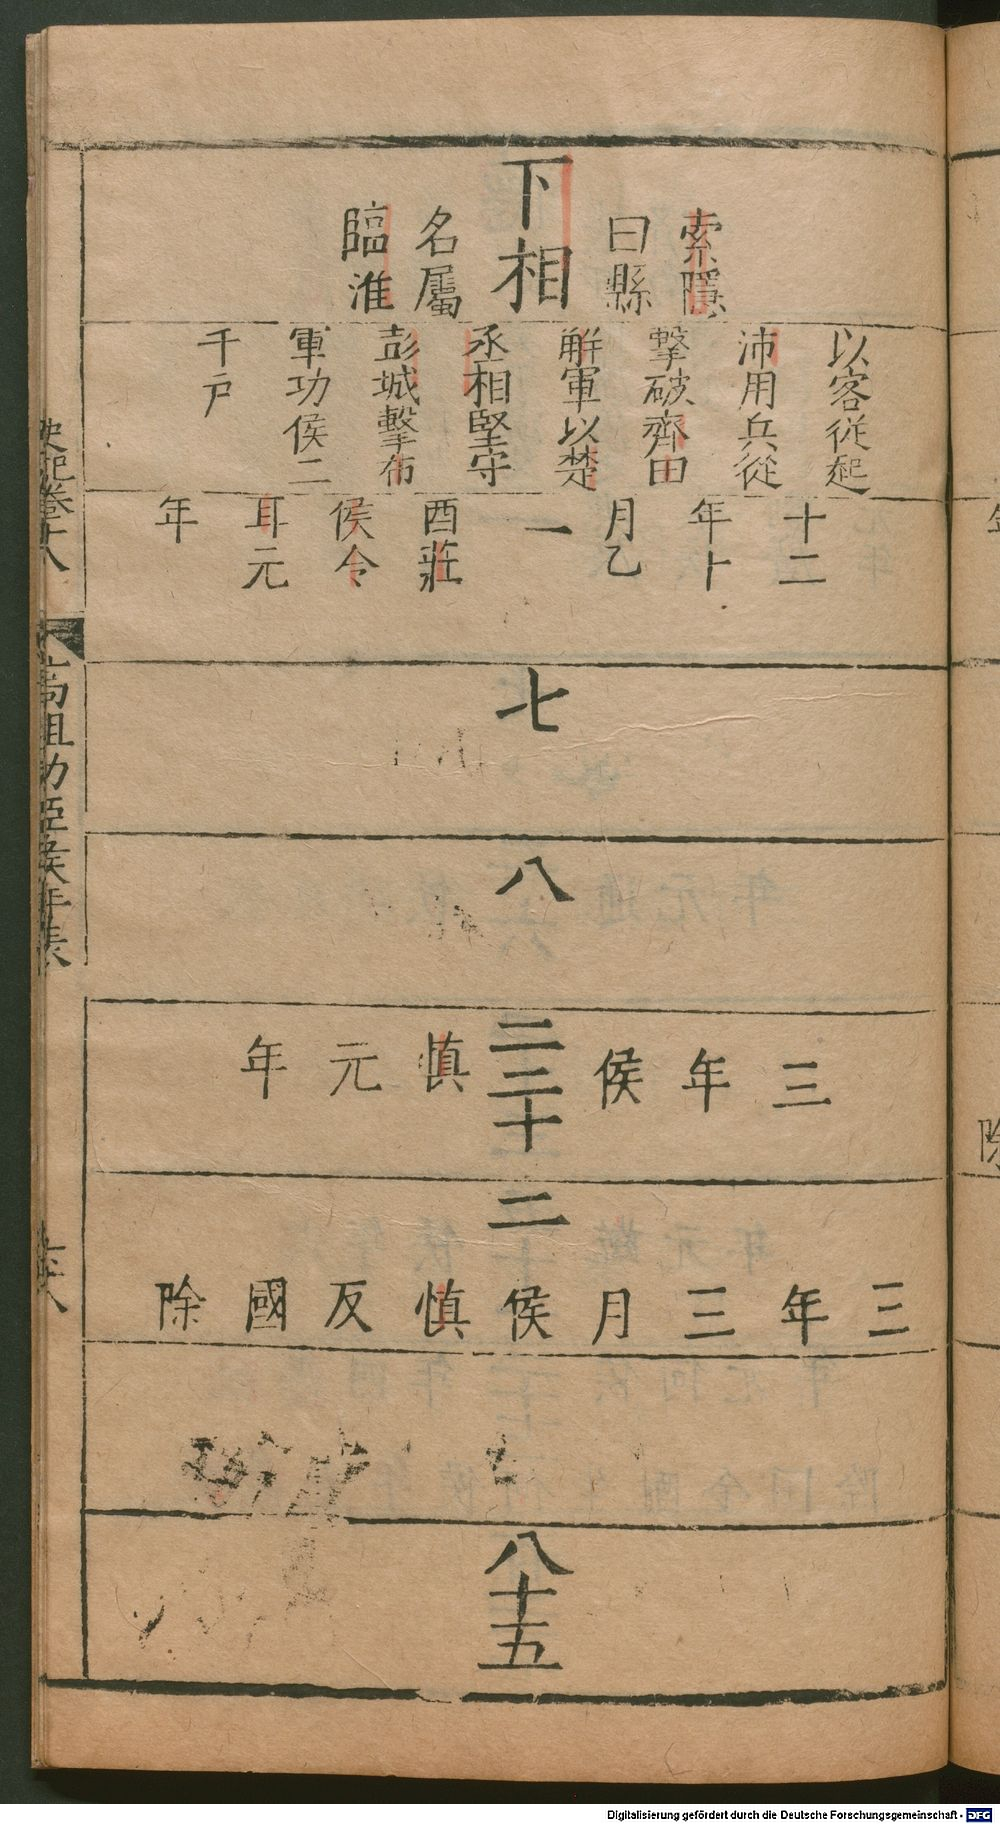 下相
索隱
曰縣
名屬
臨淮
以客從起
沛用兵從
擊破齊田
解軍以楚
丞相堅守
彭城擊布
軍功侯二
千戶
十二
年十
月乙
一
酉莊
侯冷
耳元
年
七
八
二
三年侯慎元年
二十
二
三年三月侯慎反國除
八十五
史記卷十八
高祖功臣侯年表
六十八
Digitalisierung gefördert durch die Deutsche Forschungsgemeinschaft - DFG